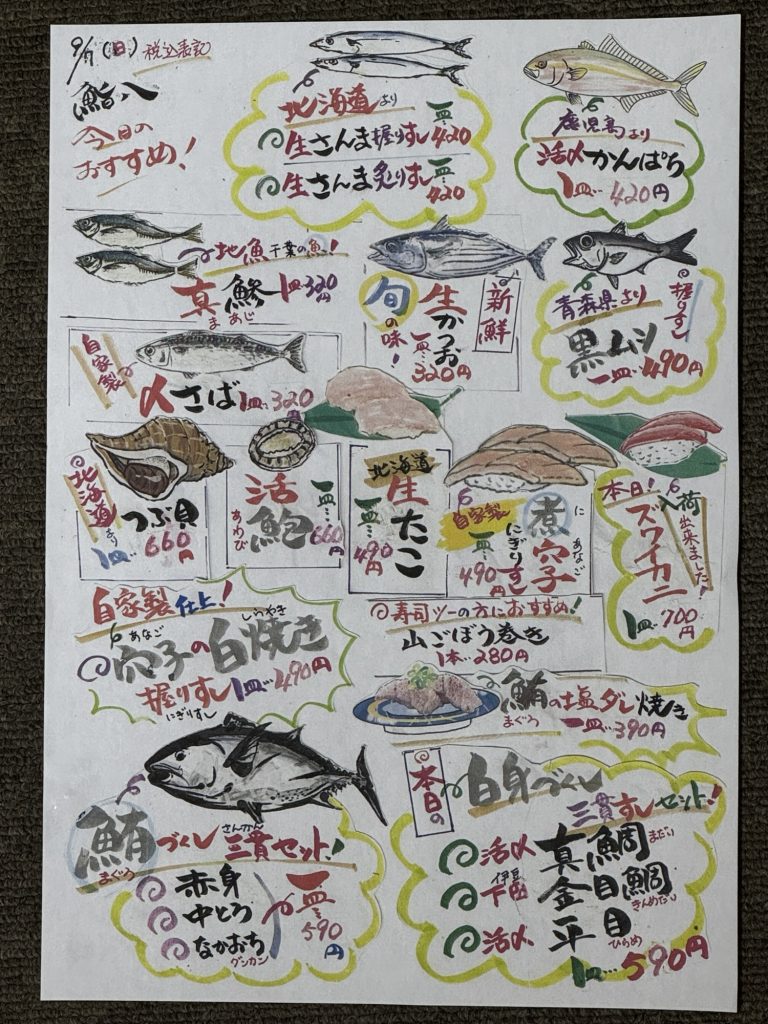 9/7(日)税込表記
鮨八
今日の
おすすめ!
北海道より
生さんま握りずし 一皿…420
生さんま炙りすし 一皿…420
鹿児島より
活〆かんぱち
1皿…420円
地魚 千葉の魚!
真鯵 1皿320円
まあじ
旬の味!
生かつお
一皿…320円
新鮮
青森県より
握りずし
黒ムツ
一皿…490円
自家製
〆さば 1皿…320円
北海道より
つぶ貝
1皿…660円
活鮑
あわび
一皿…660円
北海道
生たこ
一皿…490円
自家製
煮穴子
に あなご
にぎりすし
一皿…490円
本日!
入荷出来ました!
ズワイカニ
1皿…700円
自家製仕上!
穴子の白焼き
あなご しらやき
握りすし 1皿…490円
にぎりすし
寿司ツーの方におすすめ!
山ごぼう巻き
1本…280円
鮪の塩ダレ焼き
まぐろ
一皿…390円
鮪づくし三貫セット!
まぐろ さんかん
赤身
中とろ
なかおち
グンカン
一皿…590円
本日の
白身づくし
三貫すしセット!
活〆 真鯛 まだい
伊豆
下田 金目鯛 きんめだい
活〆 平目 ひらめ
1皿…590円